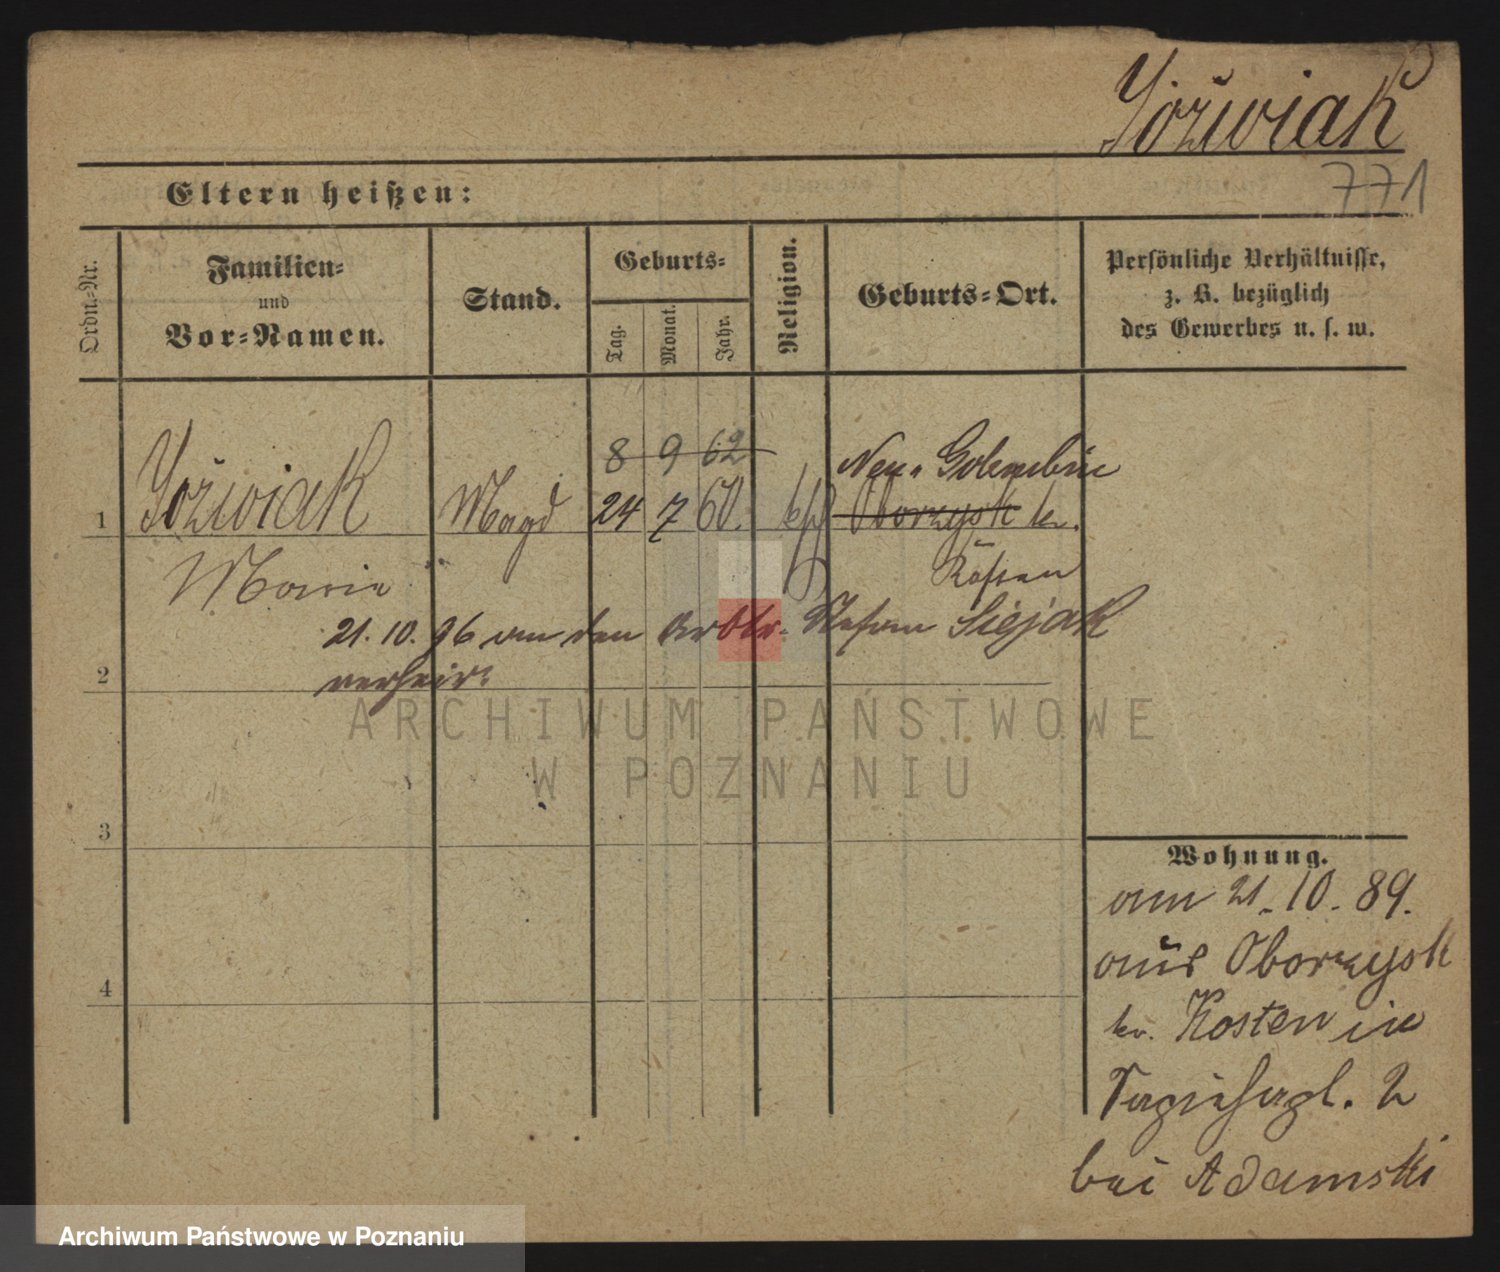 Joźwiak
771
Eltern heißen:
Ordn.-Nr.
Familien-
und
Vor-Namen.
Stand.
Geburts-
Tag.
Monat.
Jahr.
Religion.
Geburts-Ort.
Persönliche Verhältnisse,
z. B. bezüglich
des Gewerbes u. s. w.
8 9 62
Neu-Golembin
1 Joźwiak Magd 24 7 60. kth Oborzysk kr.
Marie Kosten
21.10.96 an den Arbtr. Stefan Siejak
2 verheir.
ARCHIWUM PAŃSTWOWE
W POZNANIU
3
Wohnung.
am 21.10.89.
aus Oborzysk
4
kr. Kosten in
2
bei Adamski
Archiwum Państwowe w Poznaniu